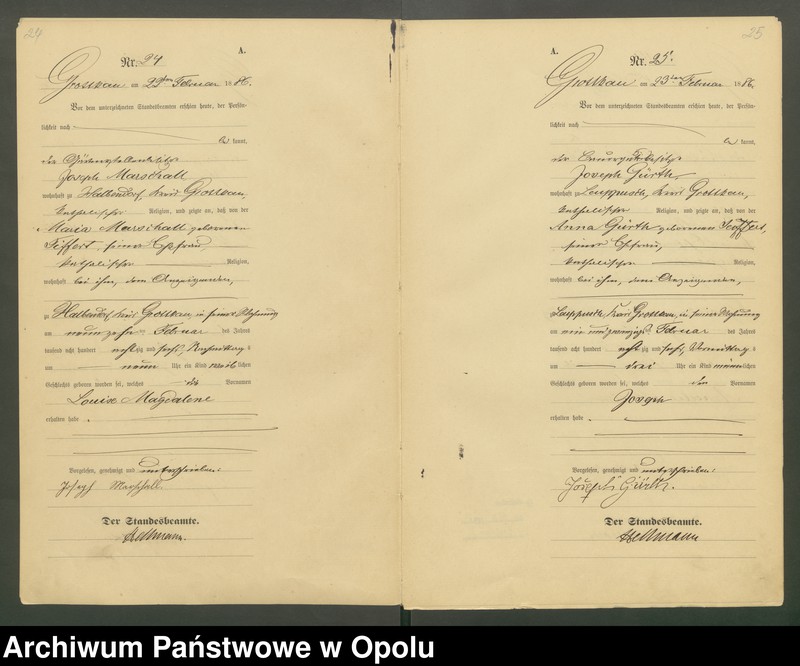 24
A.
Nr. 24
Grottkau am 23ten Februar 1886.
Vor dem unterzeichneten Standesbeamten erschien heute, der Persön-
lichkeit nach
be kannt,
der
Joseph Marschall
wohnhaft zu Halbendorf, Kreis Grottkau,
katholischer Religion, und zeigte an, daß von der
Maria Marschall geborenen
Seiffert, seiner Ehefrau,
katholischer Religion,
wohnhaft bei ihm, dem Anzeigenden,
zu Halbendorf, Kreis Grottkau, in seiner Wohnung
am neunzehn ten Februar des Jahres
tausend acht hundert achtzig und sechs, Nachmittags
um neun Uhr ein Kind weiblichen
Geschlechts geboren worden sei, welches die Vornamen
Louise Magdalene
erhalten habe.
Vorgelesen, genehmigt und unterschrieben:
Joseph Marschall
Der Standesbeamte.
25
A.
Nr. 25.
Grottkau am 23ten Februar 1886.
Vor dem unterzeichneten Standesbeamten erschien heute, der Persön-
lichkeit nach
be kannt,
der Bauergutsbesitzer
Joseph Gürth,
wohnhaft zu Kreis Grottkau,
katholischer Religion, und zeigte an, daß von der
Anna Gürth geborenen
seiner Ehefrau,
katholischer Religion,
wohnhaft bei ihm, dem Anzeigenden,
Kreis Grottkau, in seiner Wohnung
am ein und zwanzigsten Februar des Jahres
tausend acht hundert achtzig und sechs, Vormittags
um drei Uhr ein Kind männlichen
Geschlechts geboren worden sei, welches den Vornamen
Joseph
erhalten habe.
Vorgelesen, genehmigt und unterschrieben:
Joseph Gürth.
Der Standesbeamte.
Archiwum Państwowe w Opolu